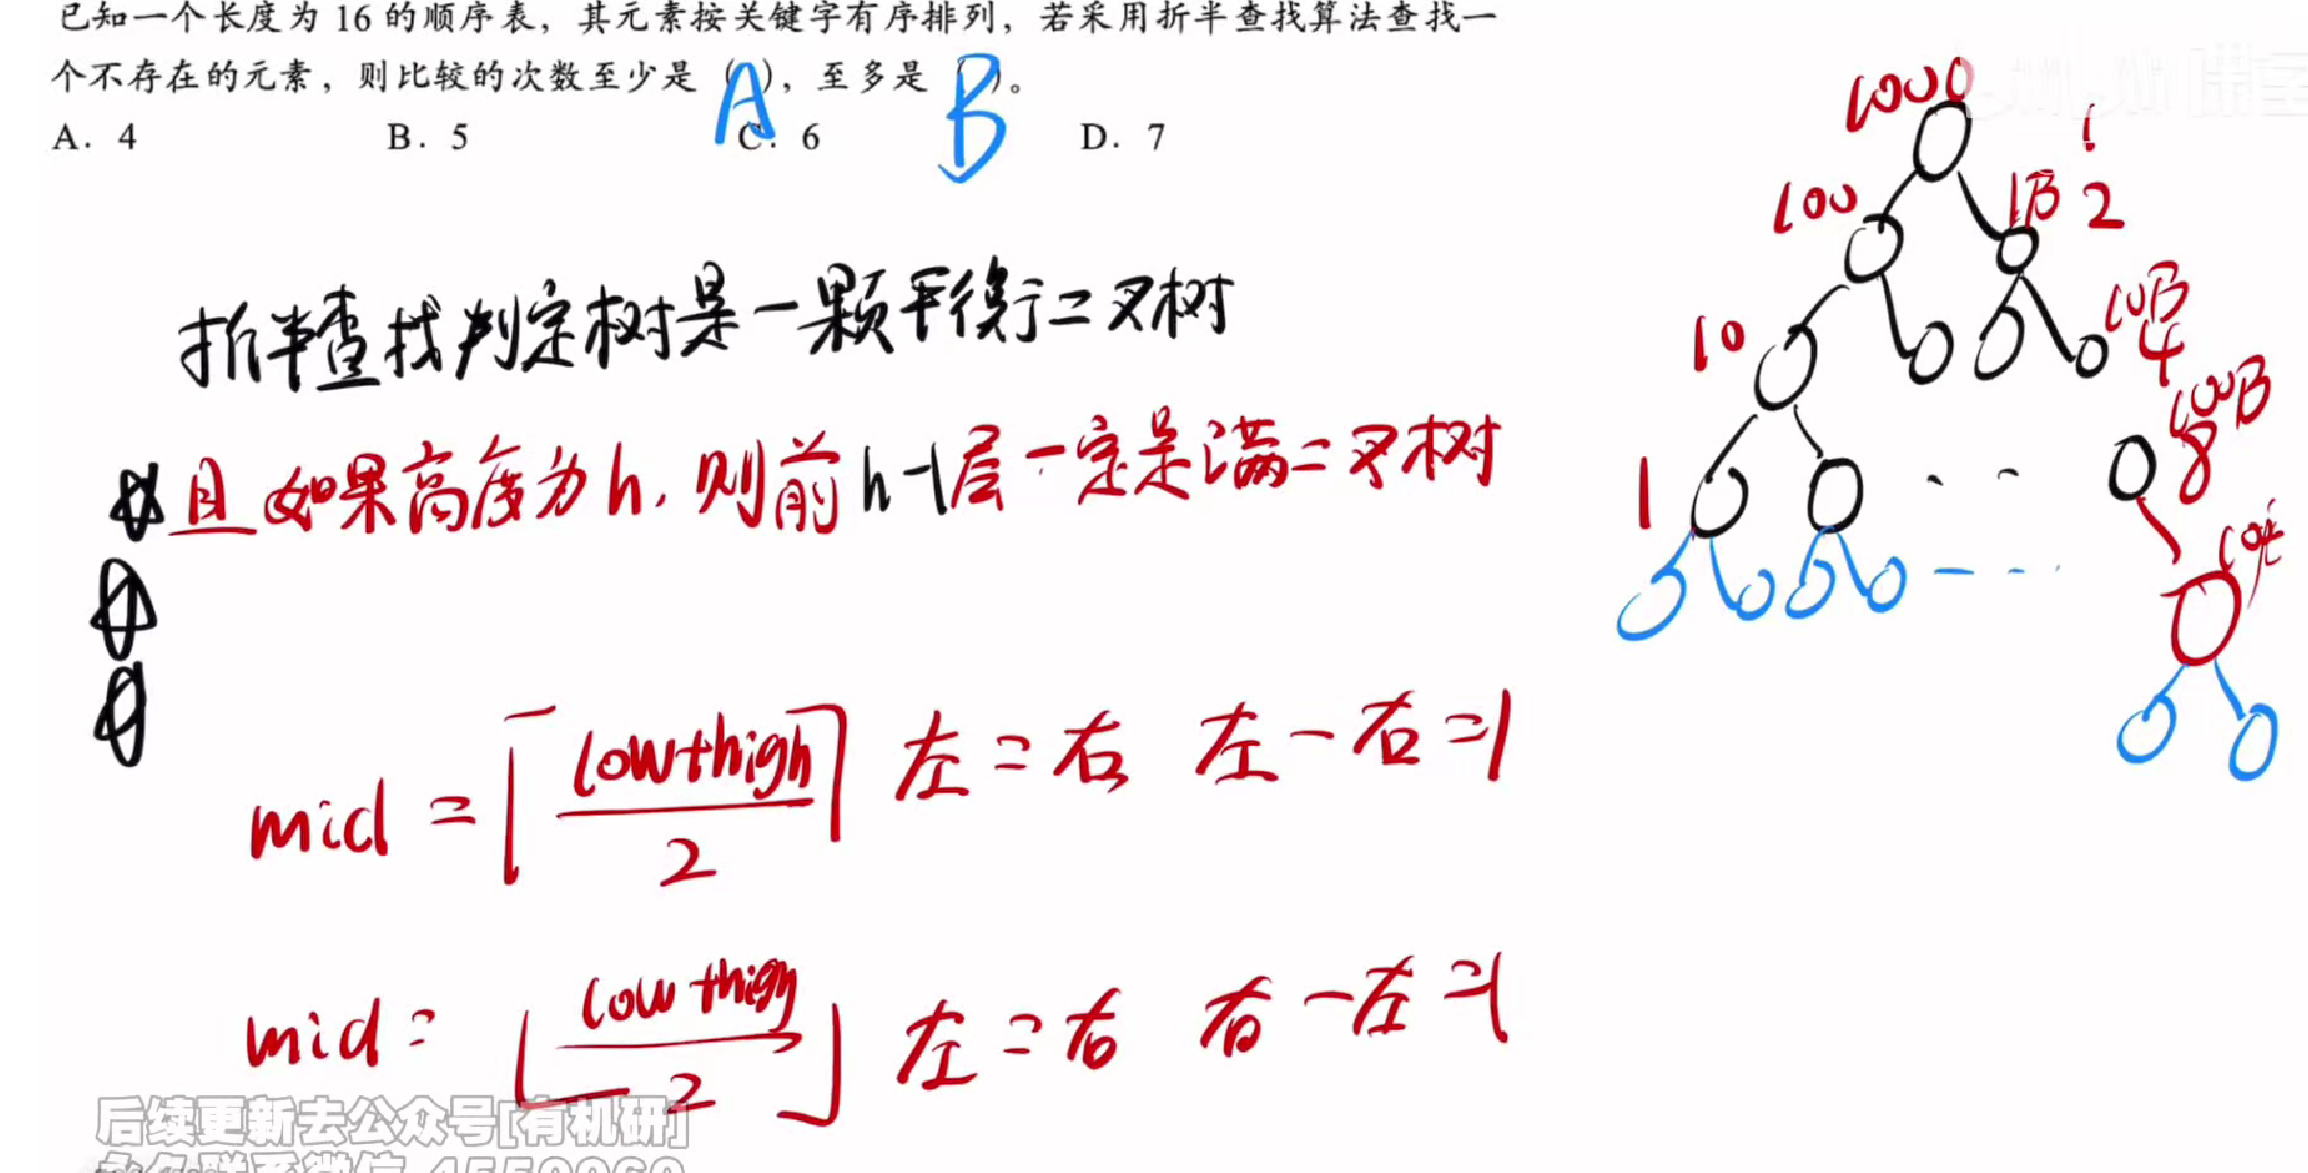 已知一个长度为 16 的顺序表，其元素按关键字有序排列，若采用折半查找算法查找一
个不存在的元素，则比较的次数至少是（A），至多是（B）。
A. 4 B. 5 C. 6 D. 7
折半查找判定树是一颗平衡二叉树
且如果高度为h,则前h-1层一定是满二叉树
mid = ⌈(low+high)/2⌉ 左=右 左-右=1
mid = ⌊(low+high)/2⌋ 左=右 右-左=1
1000
1
100
1B 2
10
10B
4
1
100B
8
后续更新去公众号[有机研]